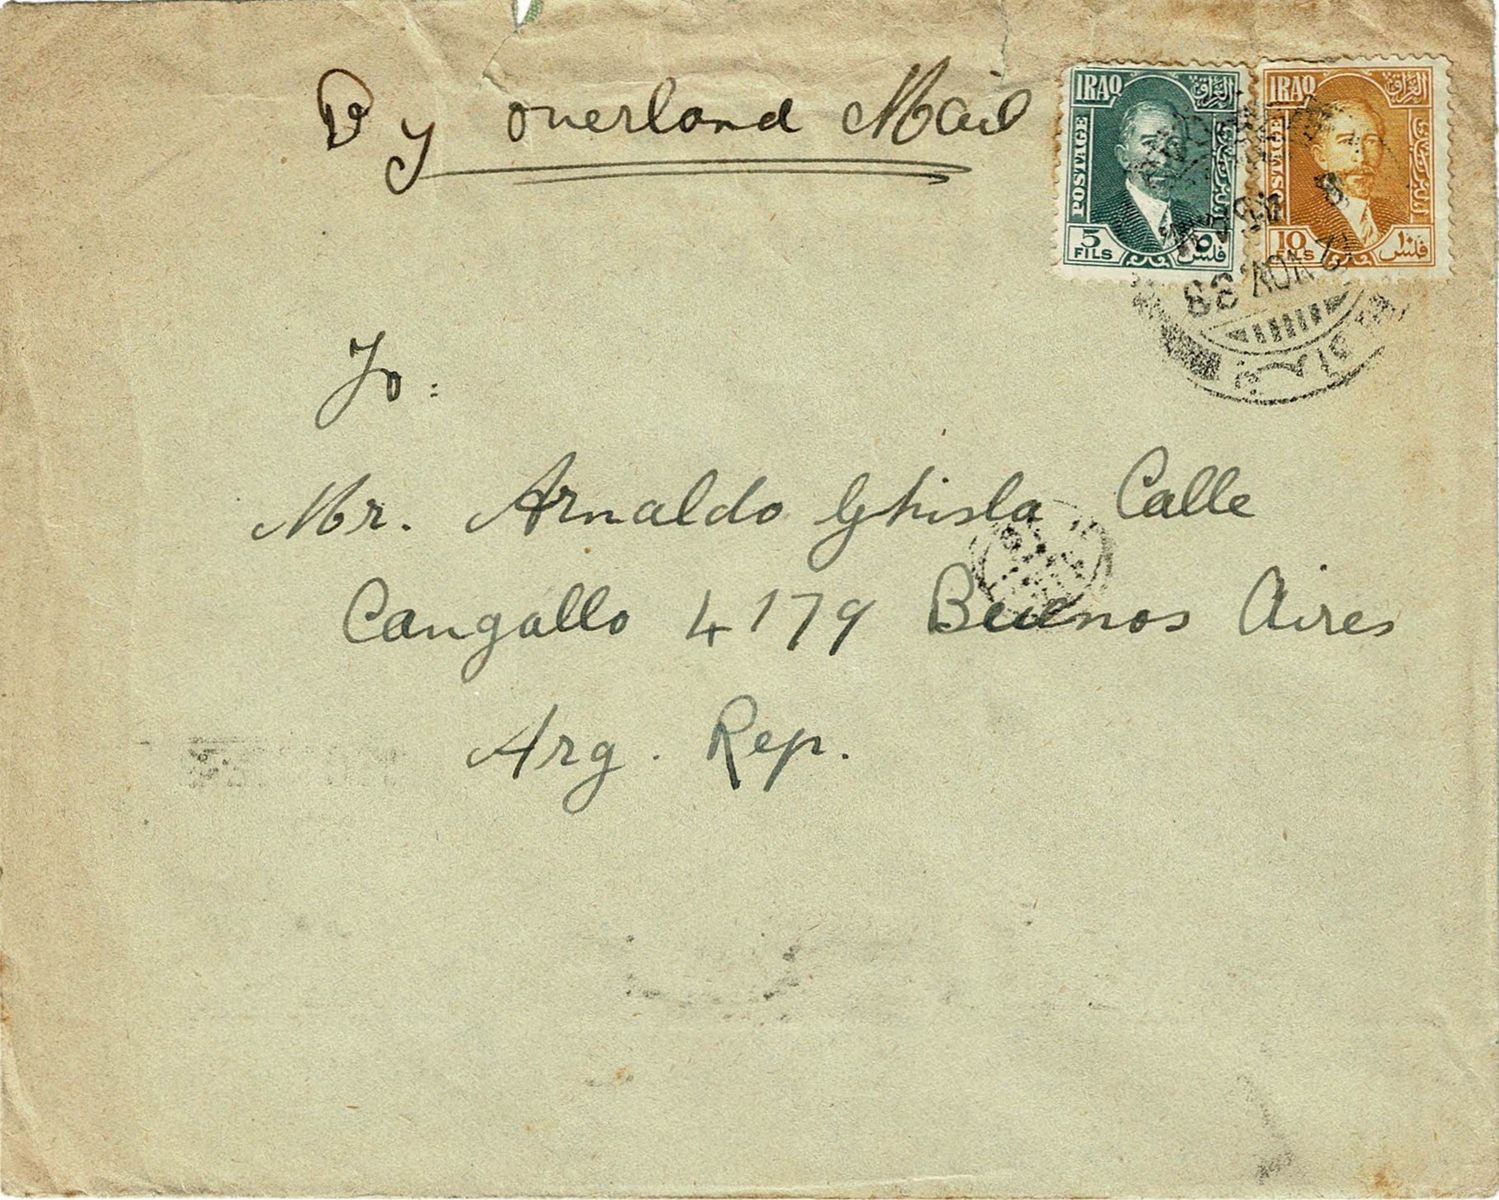 By overland Mail
IRAQ العراق
POSTAGE
5 FILS ٥ فلس
IRAQ العراق
POSTAGE
10 FILS ١٠ فلس
NOV. 33
بغداد
To:
Mr. Arnaldo Ghisla Calle
Cangallo 4179 Buenos Aires
Arg. Rep.